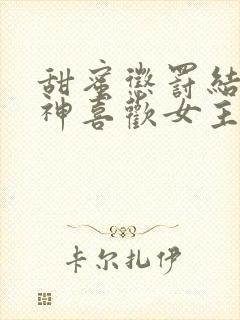 甜蜜懲罰結
神喜歡女主
卡尔扎伊